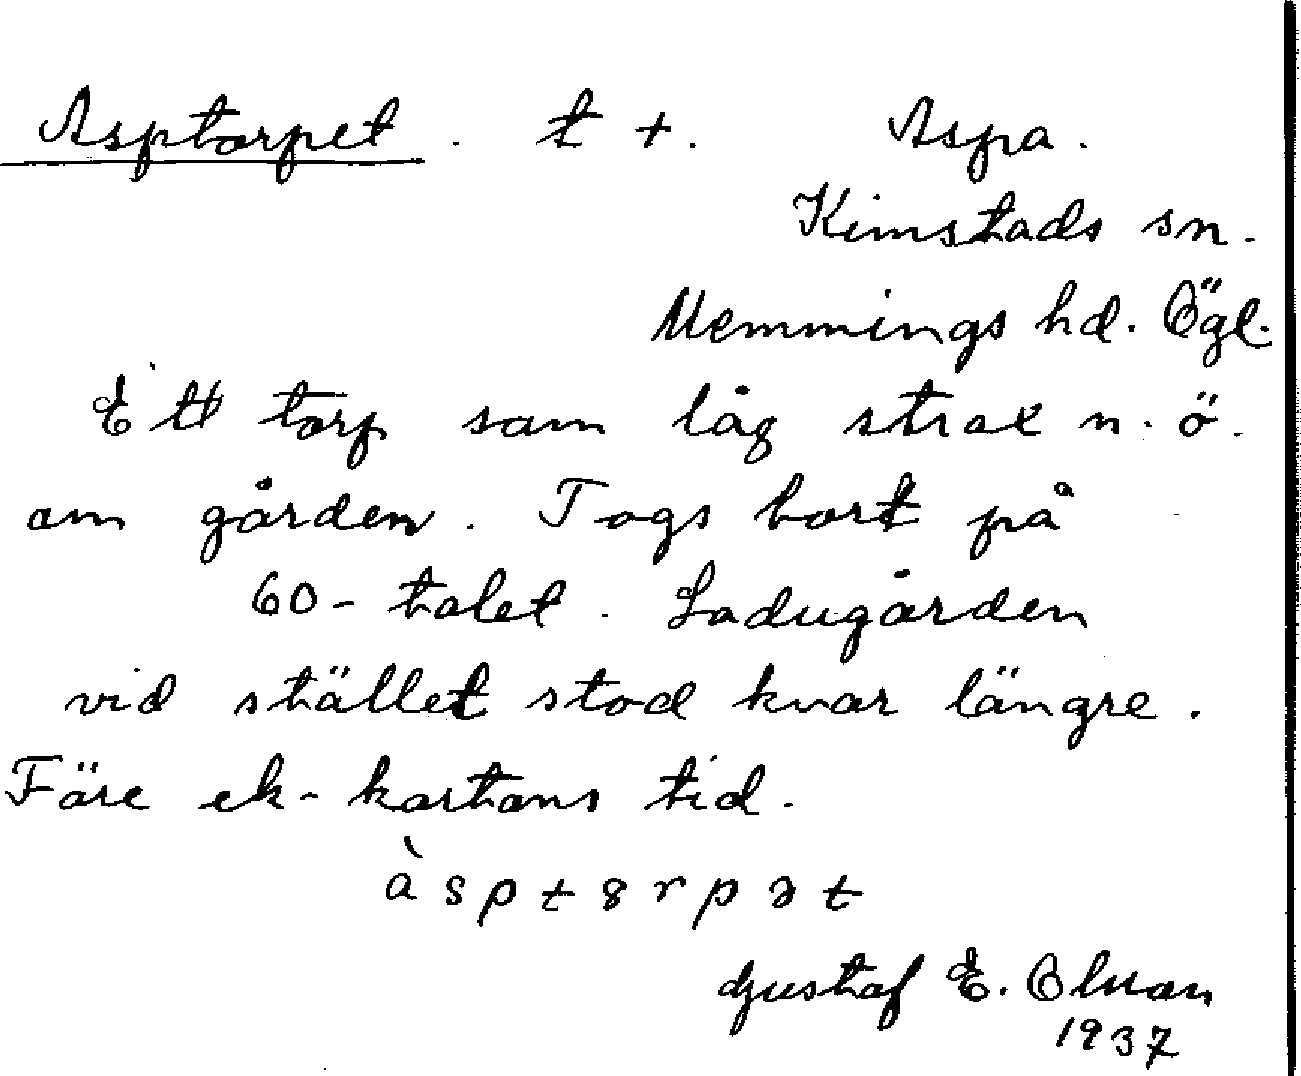 Asptorpet. t +. Aspa.
Kimstads sn.
Memmings hd. Ögl.
Ett torp som låg strax n. ö.
om gården. Togs bort på
60-talet. Ladugården
vid stället stod kvar längre.
Före ek-kartans tid.
àsptȣrpət
Gustaf E. Olsson
1937